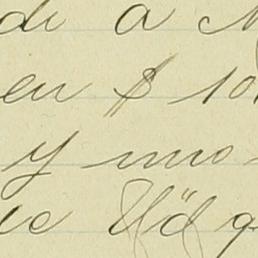 de a
en $ 10
y uno
ue Ud q